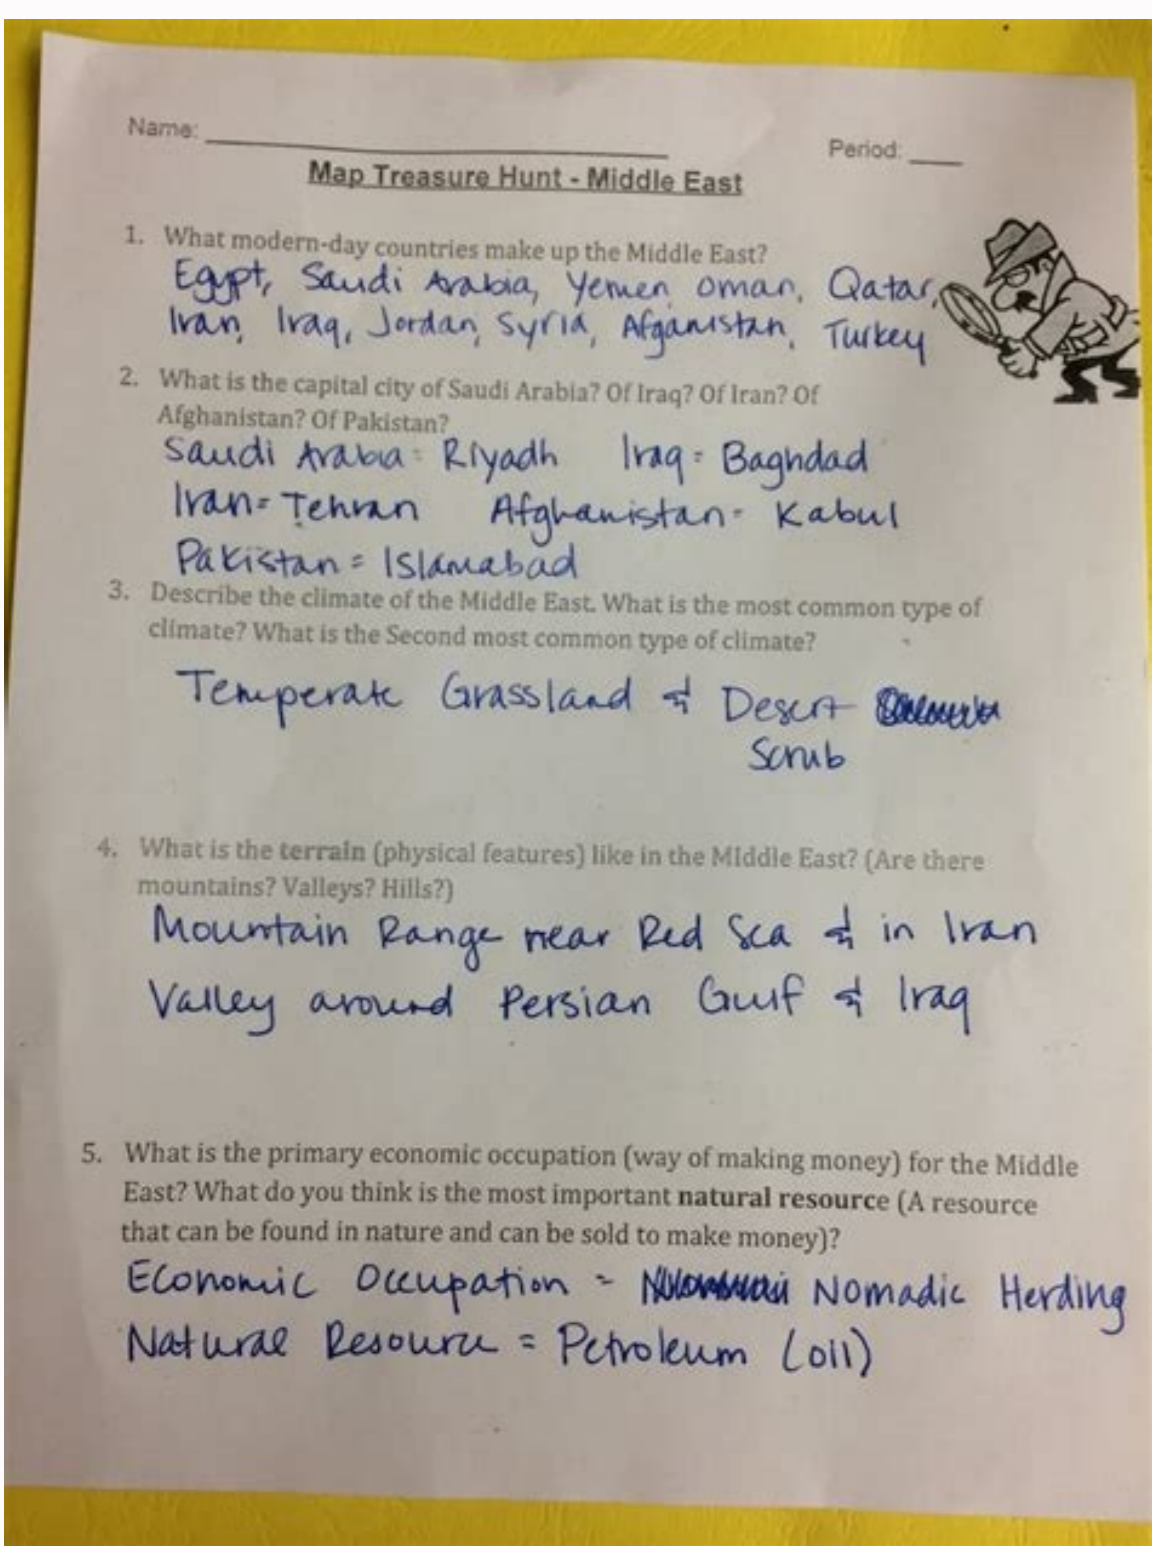 Name: ____________ Period: ____
Map Treasure Hunt - Middle East
1. What modern-day countries make up the Middle East?
Egypt, Saudi Arabia, Yemen, Oman, Qatar,
Iran, Iraq, Jordan, Syria, Afganistan, Turkey
2. What is the capital city of Saudi Arabia? Of Iraq? Of Iran? Of
Afghanistan? Of Pakistan?
Saudi Arabia = Riyadh Iraq = Baghdad
Iran = Tehran Afghanistan = Kabul
Pakistan = Islamabad
3. Describe the climate of the Middle East. What is the most common type of
climate? What is the Second most common type of climate?
Temperate Grassland & Desert
Scrub
4. What is the terrain (physical features) like in the Middle East? (Are there
mountains? Valleys? Hills?)
Mountain Range near Red Sea & in Iran
Valley around Persian Gulf & Iraq
5. What is the primary economic occupation (way of making money) for the Middle
East? What do you think is the most important natural resource (A resource
that can be found in nature and can be sold to make money)?
Economic Occupation = Nomadic Herding
Natural Resource = Petroleum (oil)